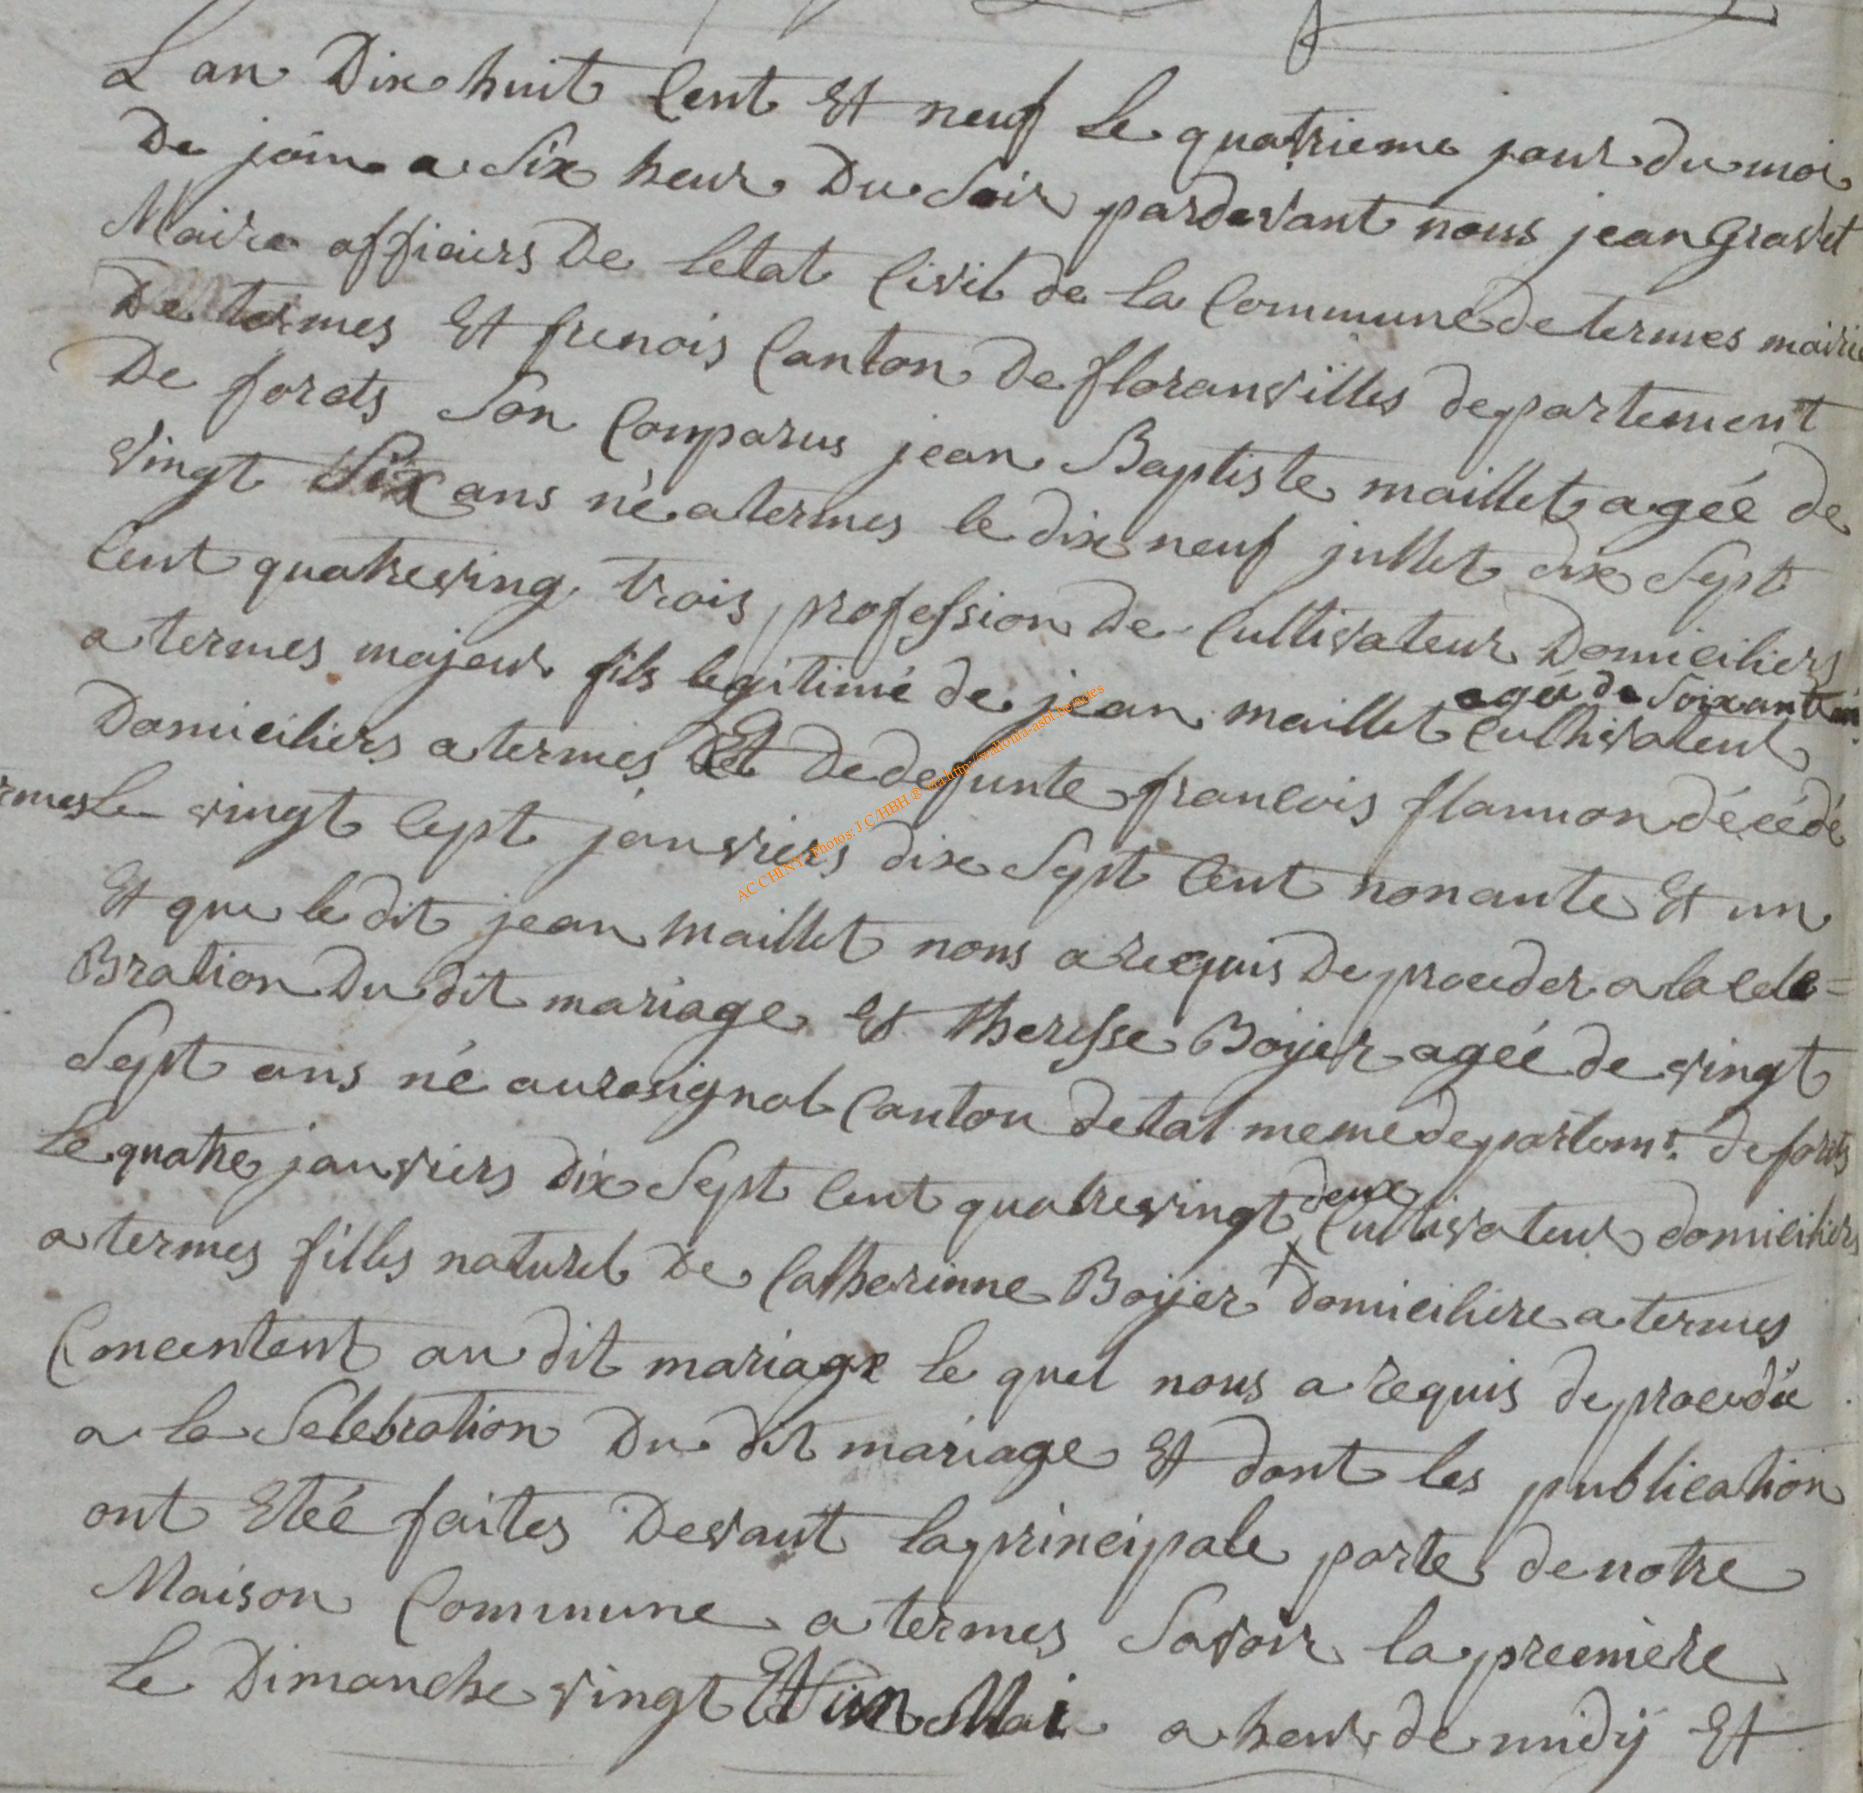 L an Dix huit Cent Et neuf Le quatrieme jour du moi
De join a Six heur Du Soir pardevant nous jean Gravet
Maire officiers De letat Civil de la Commune de termes mairie
De termes Et frenois Canton De floranvilles departement
De forets Son Comparus jean Baptiste maillet agéé de
vingt Six ans né a termes le dix neuf jullet dix Sept
Cent quatreving trois profession De Cultivateur Domiciliers
a termes majeur fils legitimé de jean maillet Cultivateur
agéé de Soixant
Domiciliers a termes Et De defunte francois flamion décédé
rmes Le vingt Cept janviers dix Sept Cent nonante Et un
Et que le dit jean Maillet nous a requis De proceder a la cele=
Bration Du dit mariage Et Theresse Boyer agéé de vingt
Sept ans né au rosignol Canton detal meme departemt. de forets
Le quatre janviers dix Sept Cent quatrevingt deux Cultivateur domiciliers
a termes filles naturel De Catherinne Boyer domiciliere a termes
Concentent au dit mariage le quel nous a requis de procedée
a la Selebration Du dit mariage Et dont les publication
ont Etéé faites Devant la principale porte de notre
Maison Commune a termes Savoir la preemiere
le Dimanche vingt Et un Mai a heur de midÿ Et
ACCHINY Photos: J.C.HBH ® via http://wallonia-asbl.be/actes